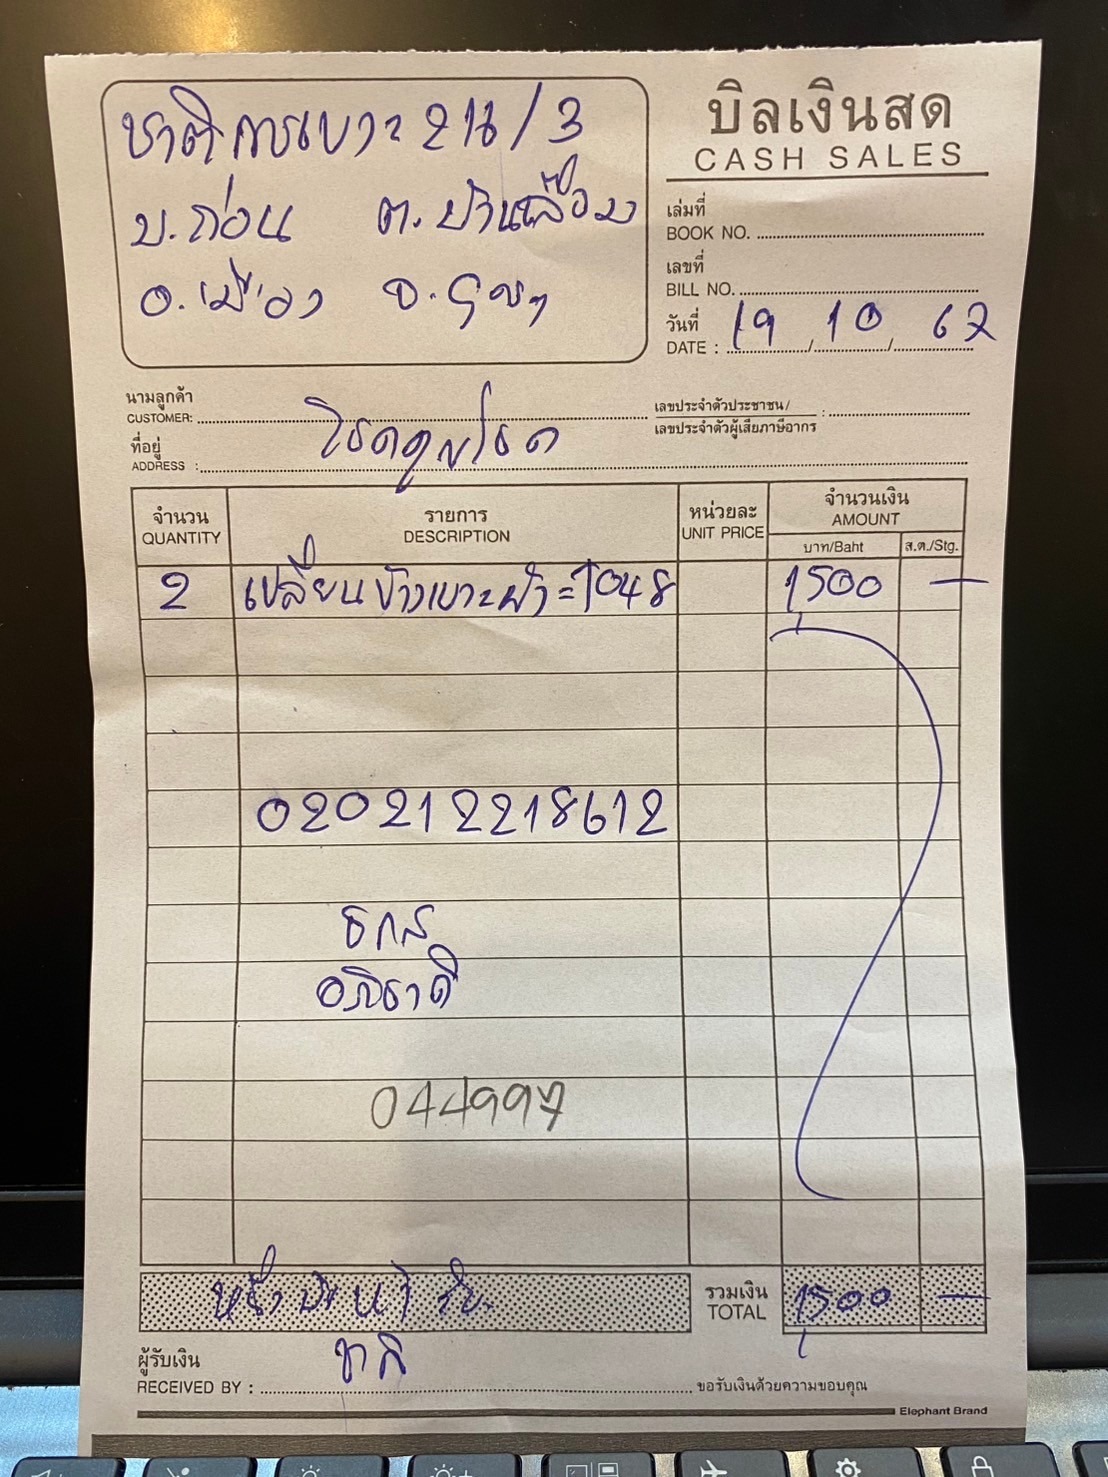 ชาติการเบาะ 211/3
บิลเงินสด
CASH SALES
บ.ก่อน ต.บ้านเลื่อม
อ.เมือง จ.อุดรฯ
เล่มที่
BOOK NO.
เลขที่
BILL NO.
วันที่
DATE : 19 / 10 / 62
นามลูกค้า
CUSTOMER:
เลขประจำตัวประชาชน/
เลขประจำตัวผู้เสียภาษีอากร :
ที่อยู่
ADDRESS :
จำนวน รายการ หน่วยละ จำนวนเงิน
QUANTITY DESCRIPTION UNIT PRICE AMOUNT
บาท/Baht ส.ต./Stg.
2 เปลี่ยน เบาะ 1048 1,500 —
020212218612
ธกส
อภิชาติ
044997
รวมเงิน
TOTAL 1,500 —
ชาติ
ผู้รับเงิน
RECEIVED BY : ขอรับเงินด้วยความขอบคุณ
Elephant Brand